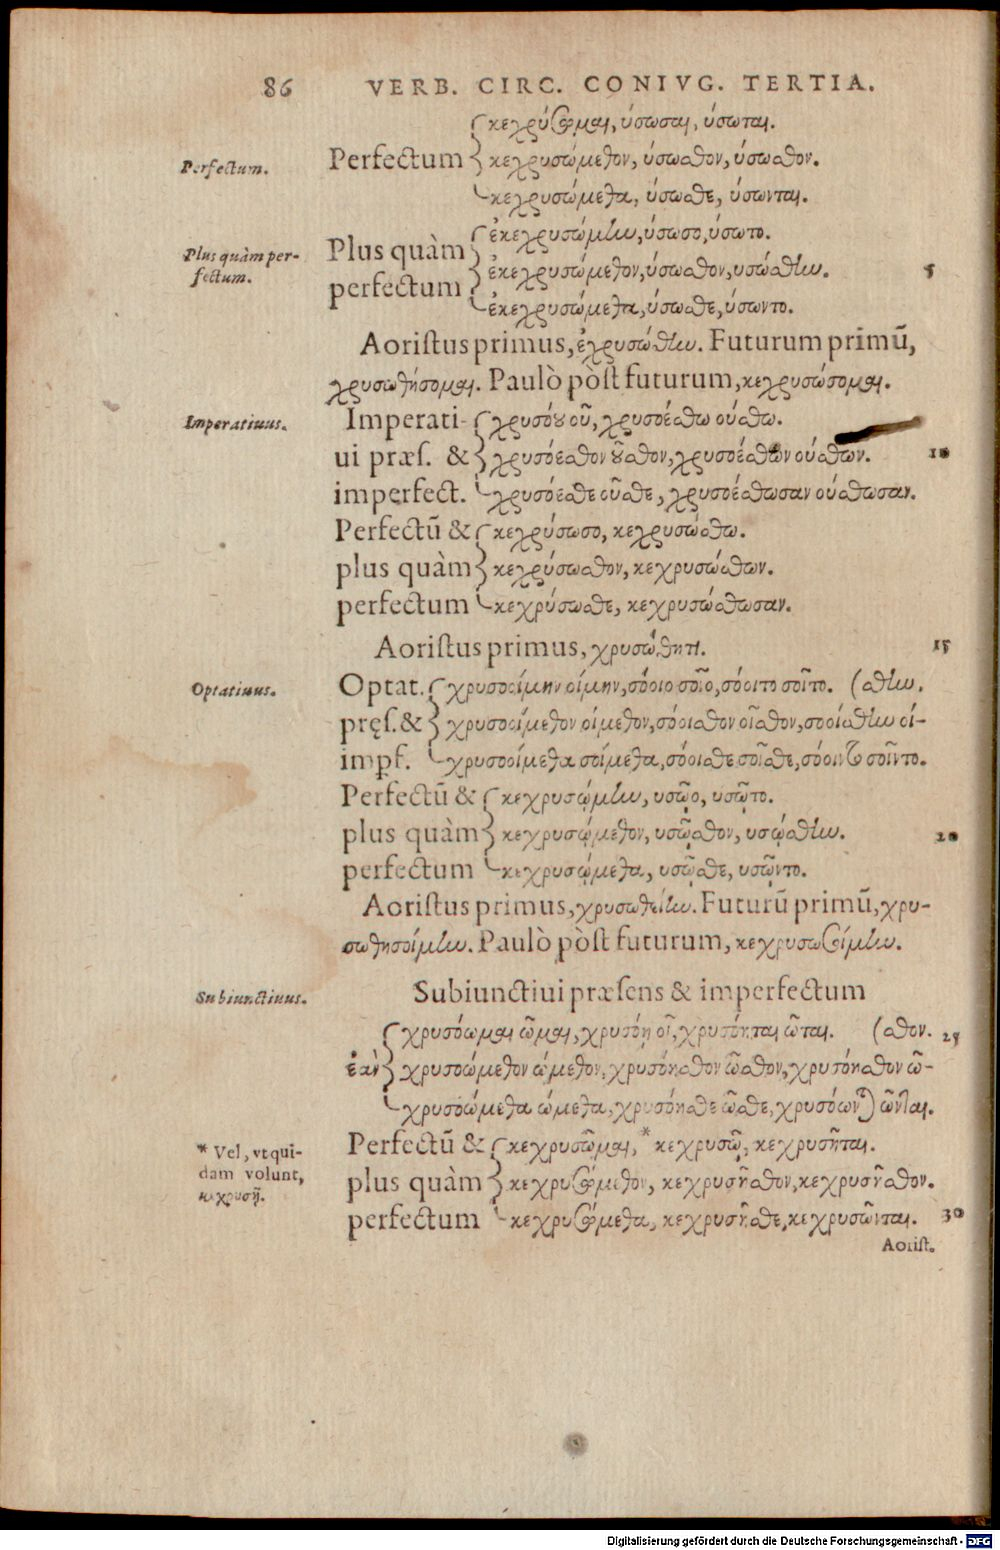 86 VERB. CIRC. CONIVG. TERTIA.
κεχρύσωμαι, ύσωσαι, ύσωται.
Perfectum. Perfectum κεχρυσώμεθον, ύσωσθον, ύσωσθον.
κεχρυσώμεθα, ύσωσθε, ύσωνται.
Plus quàm perfectum. Plus quàm perfectum
ἐκεχρυσώμην, ύσωσο, ύσωτο.
ἐκεχρυσώμεθον, ύσωσθον, υσώσθην. 5
ἐκεχρυσώμεθα, ύσωσθε, ύσωντο.
Aoriſtus primus, ἐχρυσώθην. Futurum primū,
χρυσωθήσομαι. Paulò pòſt futurum, κεχρυσώσομαι.
Imperatiuus. Imperati- χρυσόου οῦ, χρυσοέσθω ούσθω.
ui præſ. & χρυσόεσθον οῦσθον, χρυσοέσθων ούσθων. 10
imperfect. χρυσόεσθε οῦσθε, χρυσοέσθωσαν ούσθωσαν.
Perfectū & κεχρύσωσο, κεχρυσώσθω.
plus quàm κεχρύσωσθον, κεχρυσώσθων.
perfectum κεχρύσωσθε, κεχρυσώσθωσαν.
Aoriſtus primus, χρυσώθητι. 15
Optatiuus. Optat. χρυσοοίμην οίμην, σόοιο σοῖο, σόοιτο σοῖτο. (σθην.
pręſ. & χρυσοοίμεθον οίμεθον, σόοισθον οῖσθον, σοοίσθην οί-
impf. χρυσοοίμεθα σοίμεθα, σόοισθε σοῖσθε, σόοιντο σοῖντο.
Perfectū & κεχρυσῴμην, υσῷο, υσῷτο.
plus quàm κεχρυσῴμεθον, υσῷσθον, υσῴσθην. 20
perfectum κεχρυσῴμεθα, υσῷσθε, υσῷντο.
Aoriſtus primus, χρυσωθείην. Futurū primū, χρυ-
σωθησοίμην. Paulò pòſt futurum, κεχρυσωσοίμην.
Subiunctiuus. Subiunctiui præſens & imperfectum
χρυσόωμαι ῶμαι, χρυσόῃ οῖ, χρυσόηται ῶται. (σθον. 25
ἐὰν χρυσοώμεθον ώμεθον, χρυσόησθον ῶσθον, χρυσόησθον ῶ-
χρυσοώμεθα ώμεθα, χρυσόησθε ῶσθε, χρυσόωνται ῶνται.
Perfectū & κεχρυσῶμαι, * κεχρυσῷ, κεχρυσῆται.
plus quàm κεχρυσώμεθον, κεχρυσῆσθον, κεχρυσῆσθον.
perfectum κεχρυσώμεθα, κεχρυσῆσθε, κεχρυσῶνται. 30
* Vel, vt quidam volunt,
κεχρυσῇ.
Aoriſt.
Digitalisierung gefördert durch die Deutsche Forschungsgemeinschaft - DFG